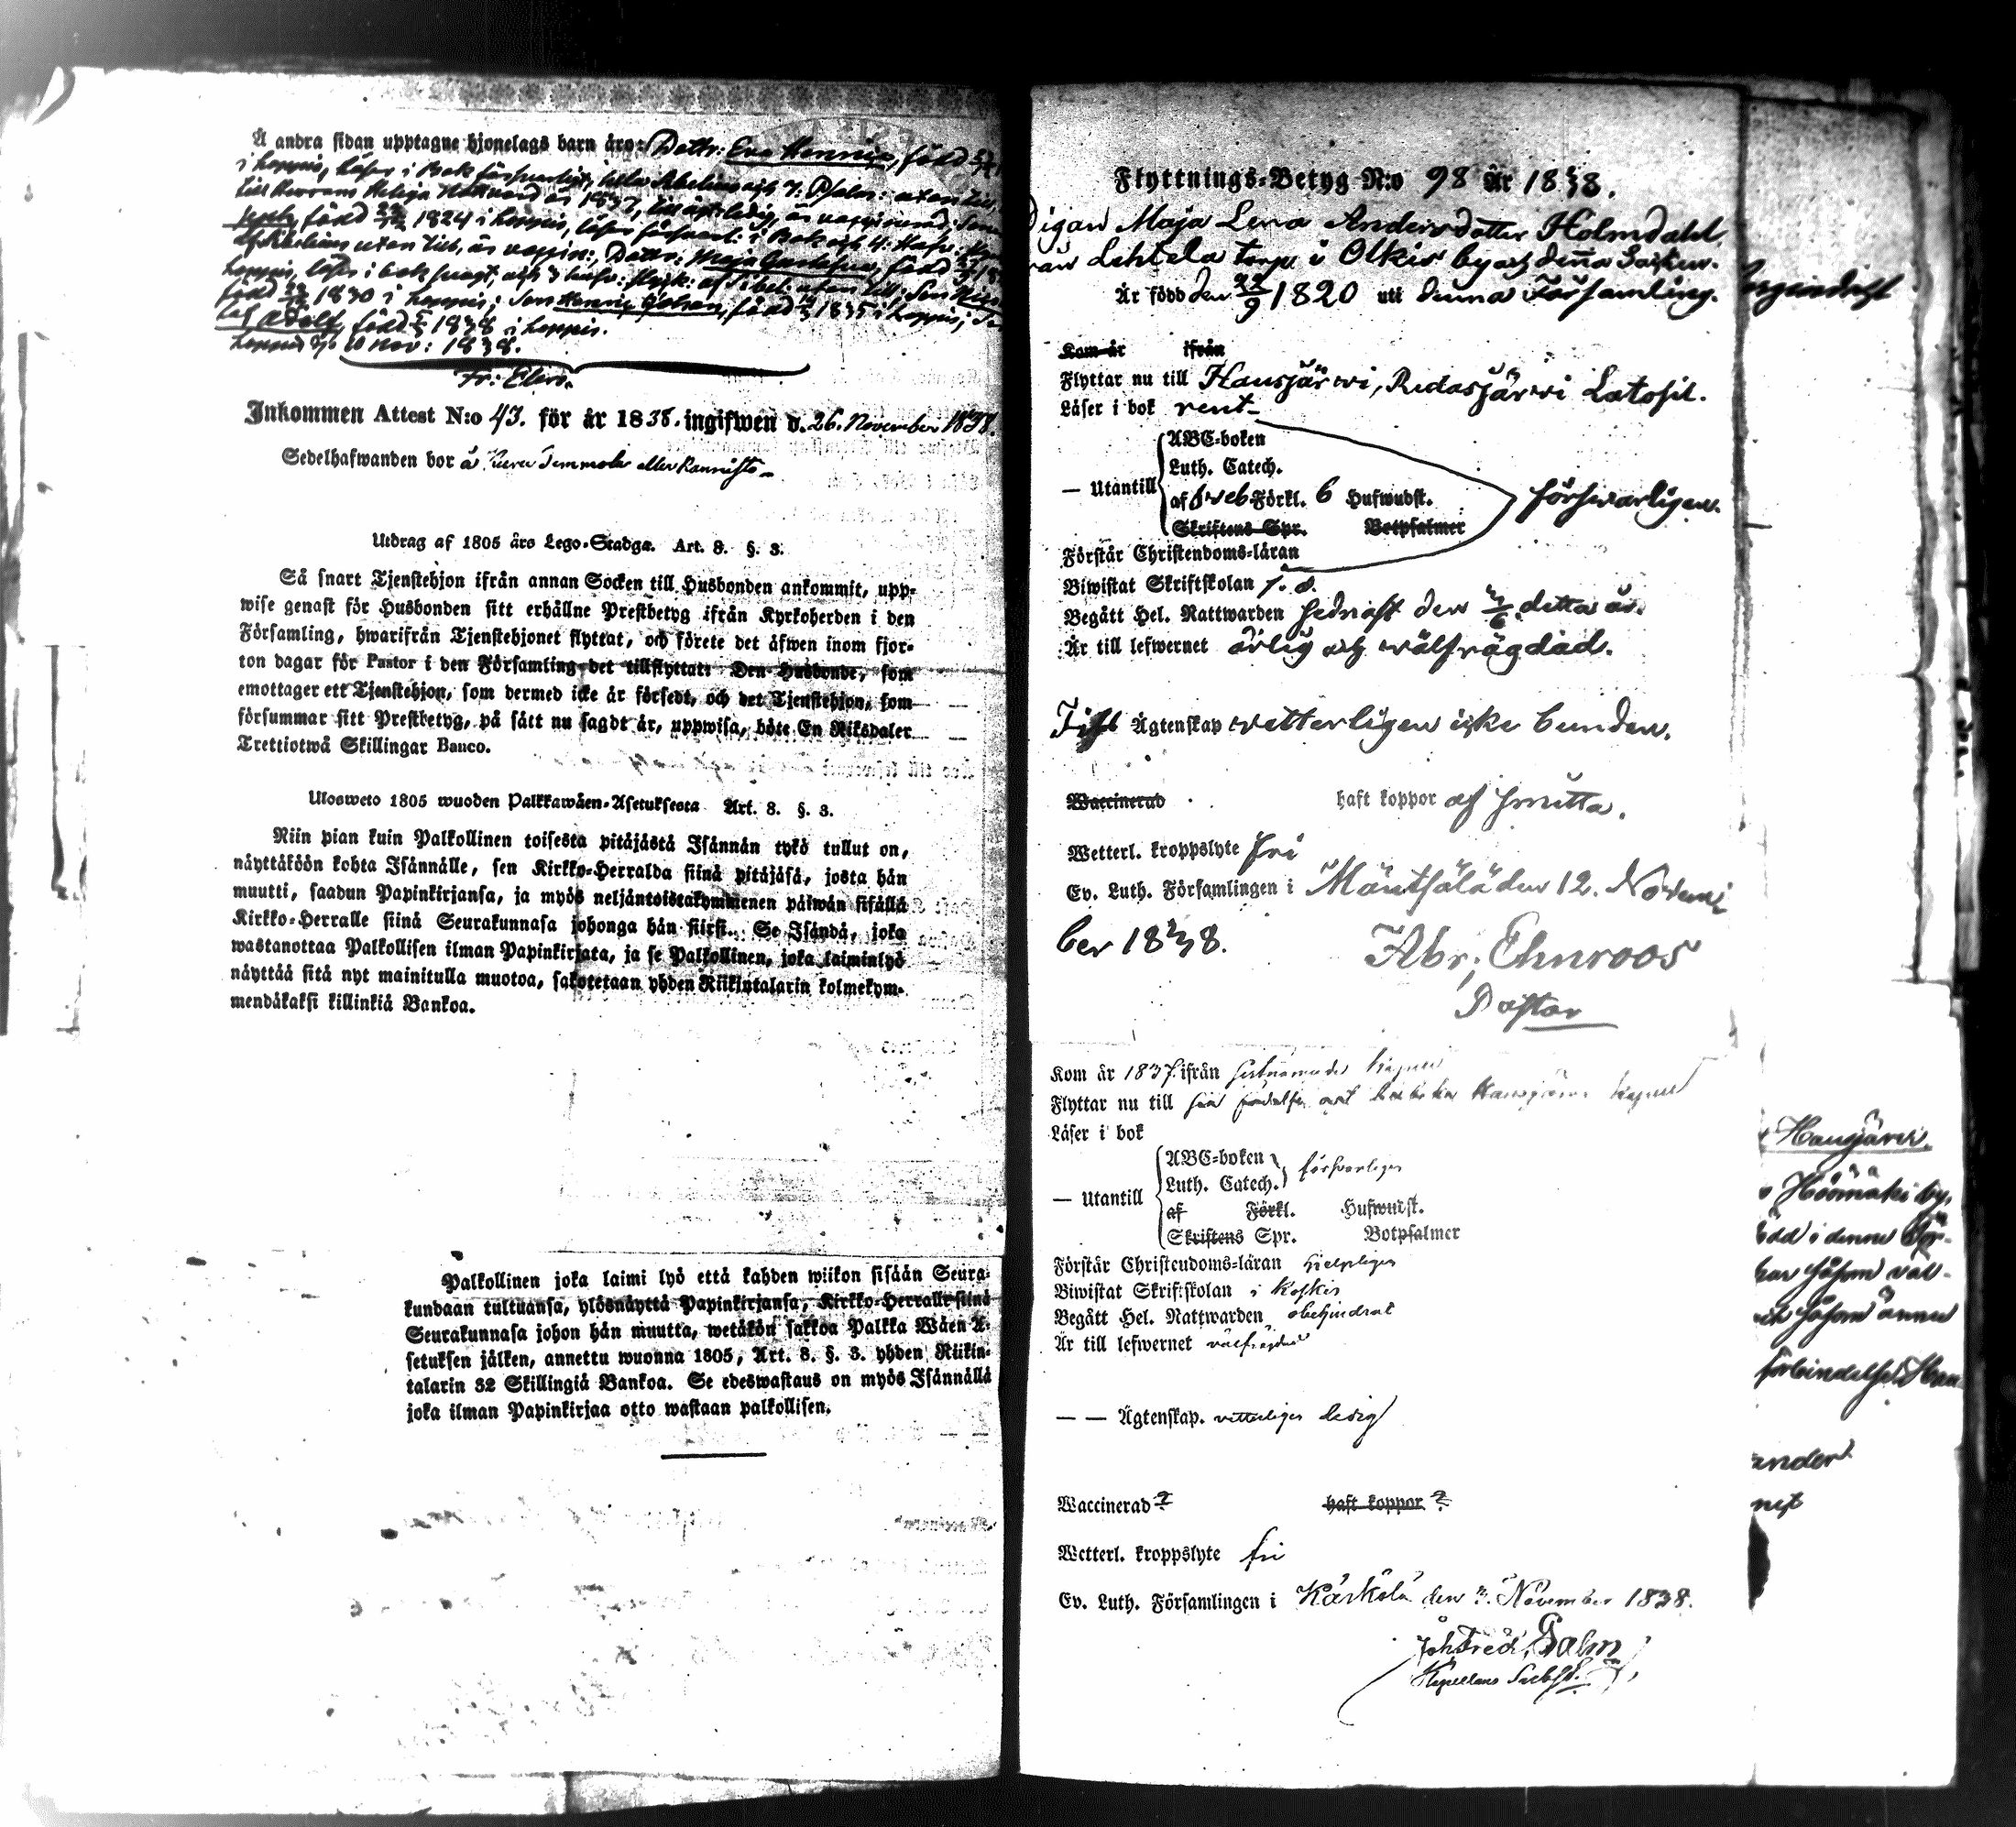 Å andra sidan upptagne hjonelags barn äro: Dottr: Eva Henrica, född
i Loppis, läser i Bok försvarligt, hela Abelini och 7. Psalm: utan till,
till Herrans Heliga Nattvard år 1837, till ägt: ledig, är vaccinerad; Sonen
född 1824 i Loppis, läser försvarl: i Bok och 4: Hufv:
af Abelini utan till, är vaccin:; Dottr: Maja Gustafva, född
Loppis, läser i bok svagt, och 3 hufv: utan till; Son
född 1830 i Loppis; Son Henric Johan, född 1835 i Loppis; Son
Adolf, född 1838 i Loppis.
Loppis d. 10 Nov: 1838.
Fr: Elers.
Inkommen Attest N:o 43. för år 1838. ingifwen d. 26. November 1838.
Sedelhafwanden bor å eller
Utdrag af 1805 års Lego-Stadga. Art. 8. §. 3.
Så snart Tjenstehjon ifrån annan Socken till Husbonden ankommit, upp-
wise genast för Husbonden sitt erhållne Prestbetyg ifrån Kyrkoherden i den
Församling, hwarifrån Tjenstehjonet flyttat, och förete det äfwen inom fjor-
ton dagar för Pastor i den Församling det tillflyttat: Den Husbonde, som
emottager ett Tjenstehjon, som dermed icke är försedt, och det Tjenstehjon, som
försummar sitt Prestbetyg, på sätt nu sagdt är, uppwisa, böte En Riksdaler
Trettiotwå Skillingar Banco.
Ulosweto 1805 wuoden Palkkawäen-Asetuksesta Art. 8. §. 3.
Niin pian kuin Palkollinen toisesta pitäjästä Isännän tykö tullut on,
näyttäköön kohta Isännälle, sen Kirkko-Herralda siinä pitäjäsä, josta hän
muutti, saadun Papinkirjansa, ja myös neljäntoistakymmenen päiwän sisällä
Kirkko-Herralle siinä Seurakunnasa johonga hän siirsi. Se Isändä, joka
wastanottaa Palkollisen ilman Papinkirjata, ja se Palkollinen, joka laiminlyö
näyttää sitä nyt mainitulla muotoa, sakotetaan yhden Riikintalarin kolmekym-
mendäkaksi killinkiä Bankoa.
Palkollinen joka laimi lyö että kahden wiikon sisään Seura-
kundaan tultuansa, ylösnäyttä Papinkirjansa, Kirkko-Herralle siinä
Seurakunnasa johon hän muutta, wetäkön sakkoa Palkka Wäen A-
setuksen jälken, annettu wuonna 1805, Art. 8. §. 3. yhden Riikin-
talarin 32 Skillingiä Bankoa. Se edeswastaus on myös Isännällä
joka ilman Papinkirjaa otto wastaan palkollisen.
Flyttnings-Betyg N:o 98 År 1838.
Pigan Maja Lena Andersdotter Holmdahl
från Lehtela torp i Olkis by af denna Socken.
Är född den 22/9 1820 uti denna Församling.
Kom år ifrån
Flyttar nu till Hausjärwi, Ridasjärwi Latosil.
Läser i bok rent
— Utantill
ABC-boken
Luth. Catech.
af Sweb Förkl. 6 Hufwudst.
Skriftens Spr. Botpsalmer
försvarligen.
Förstår Christendoms-läran
Biwistat Skriftskolan
Begått Hel. Nattwarden sednast den detta år.
Är till lefwernet ärlig och wälfrägdad.
Till Ägtenskap wetterligen icke bunden.
Waccinerad haft koppor af smitta.
Wetterl. kroppslyte fri
Ev. Luth. Församlingen i Mäntsälä den 12. Novem-
ber 1838.
Abr: Ehnroos
Pastor
Kom år 1837. ifrån
Flyttar nu till
Läser i bok
— Utantill
ABC-boken
Luth. Catech.
försvarligen
af Förkl. Hufwudst.
Skriftens Spr. Botpsalmer
Förstår Christendoms-läran hjelpligen
Biwistat Skriftskolan i Koskis
Begått Hel. Nattwarden obehindrat
Är till lefwernet välfrägdad
— — Ägtenskap. vetterligen ledig
Waccinerad ? haft koppor ?
Wetterl. kroppslyte fri
Ev. Luth. Församlingen i Kärkölä den 3. November 1838.
Joh. Fred.
Hausjärvi.